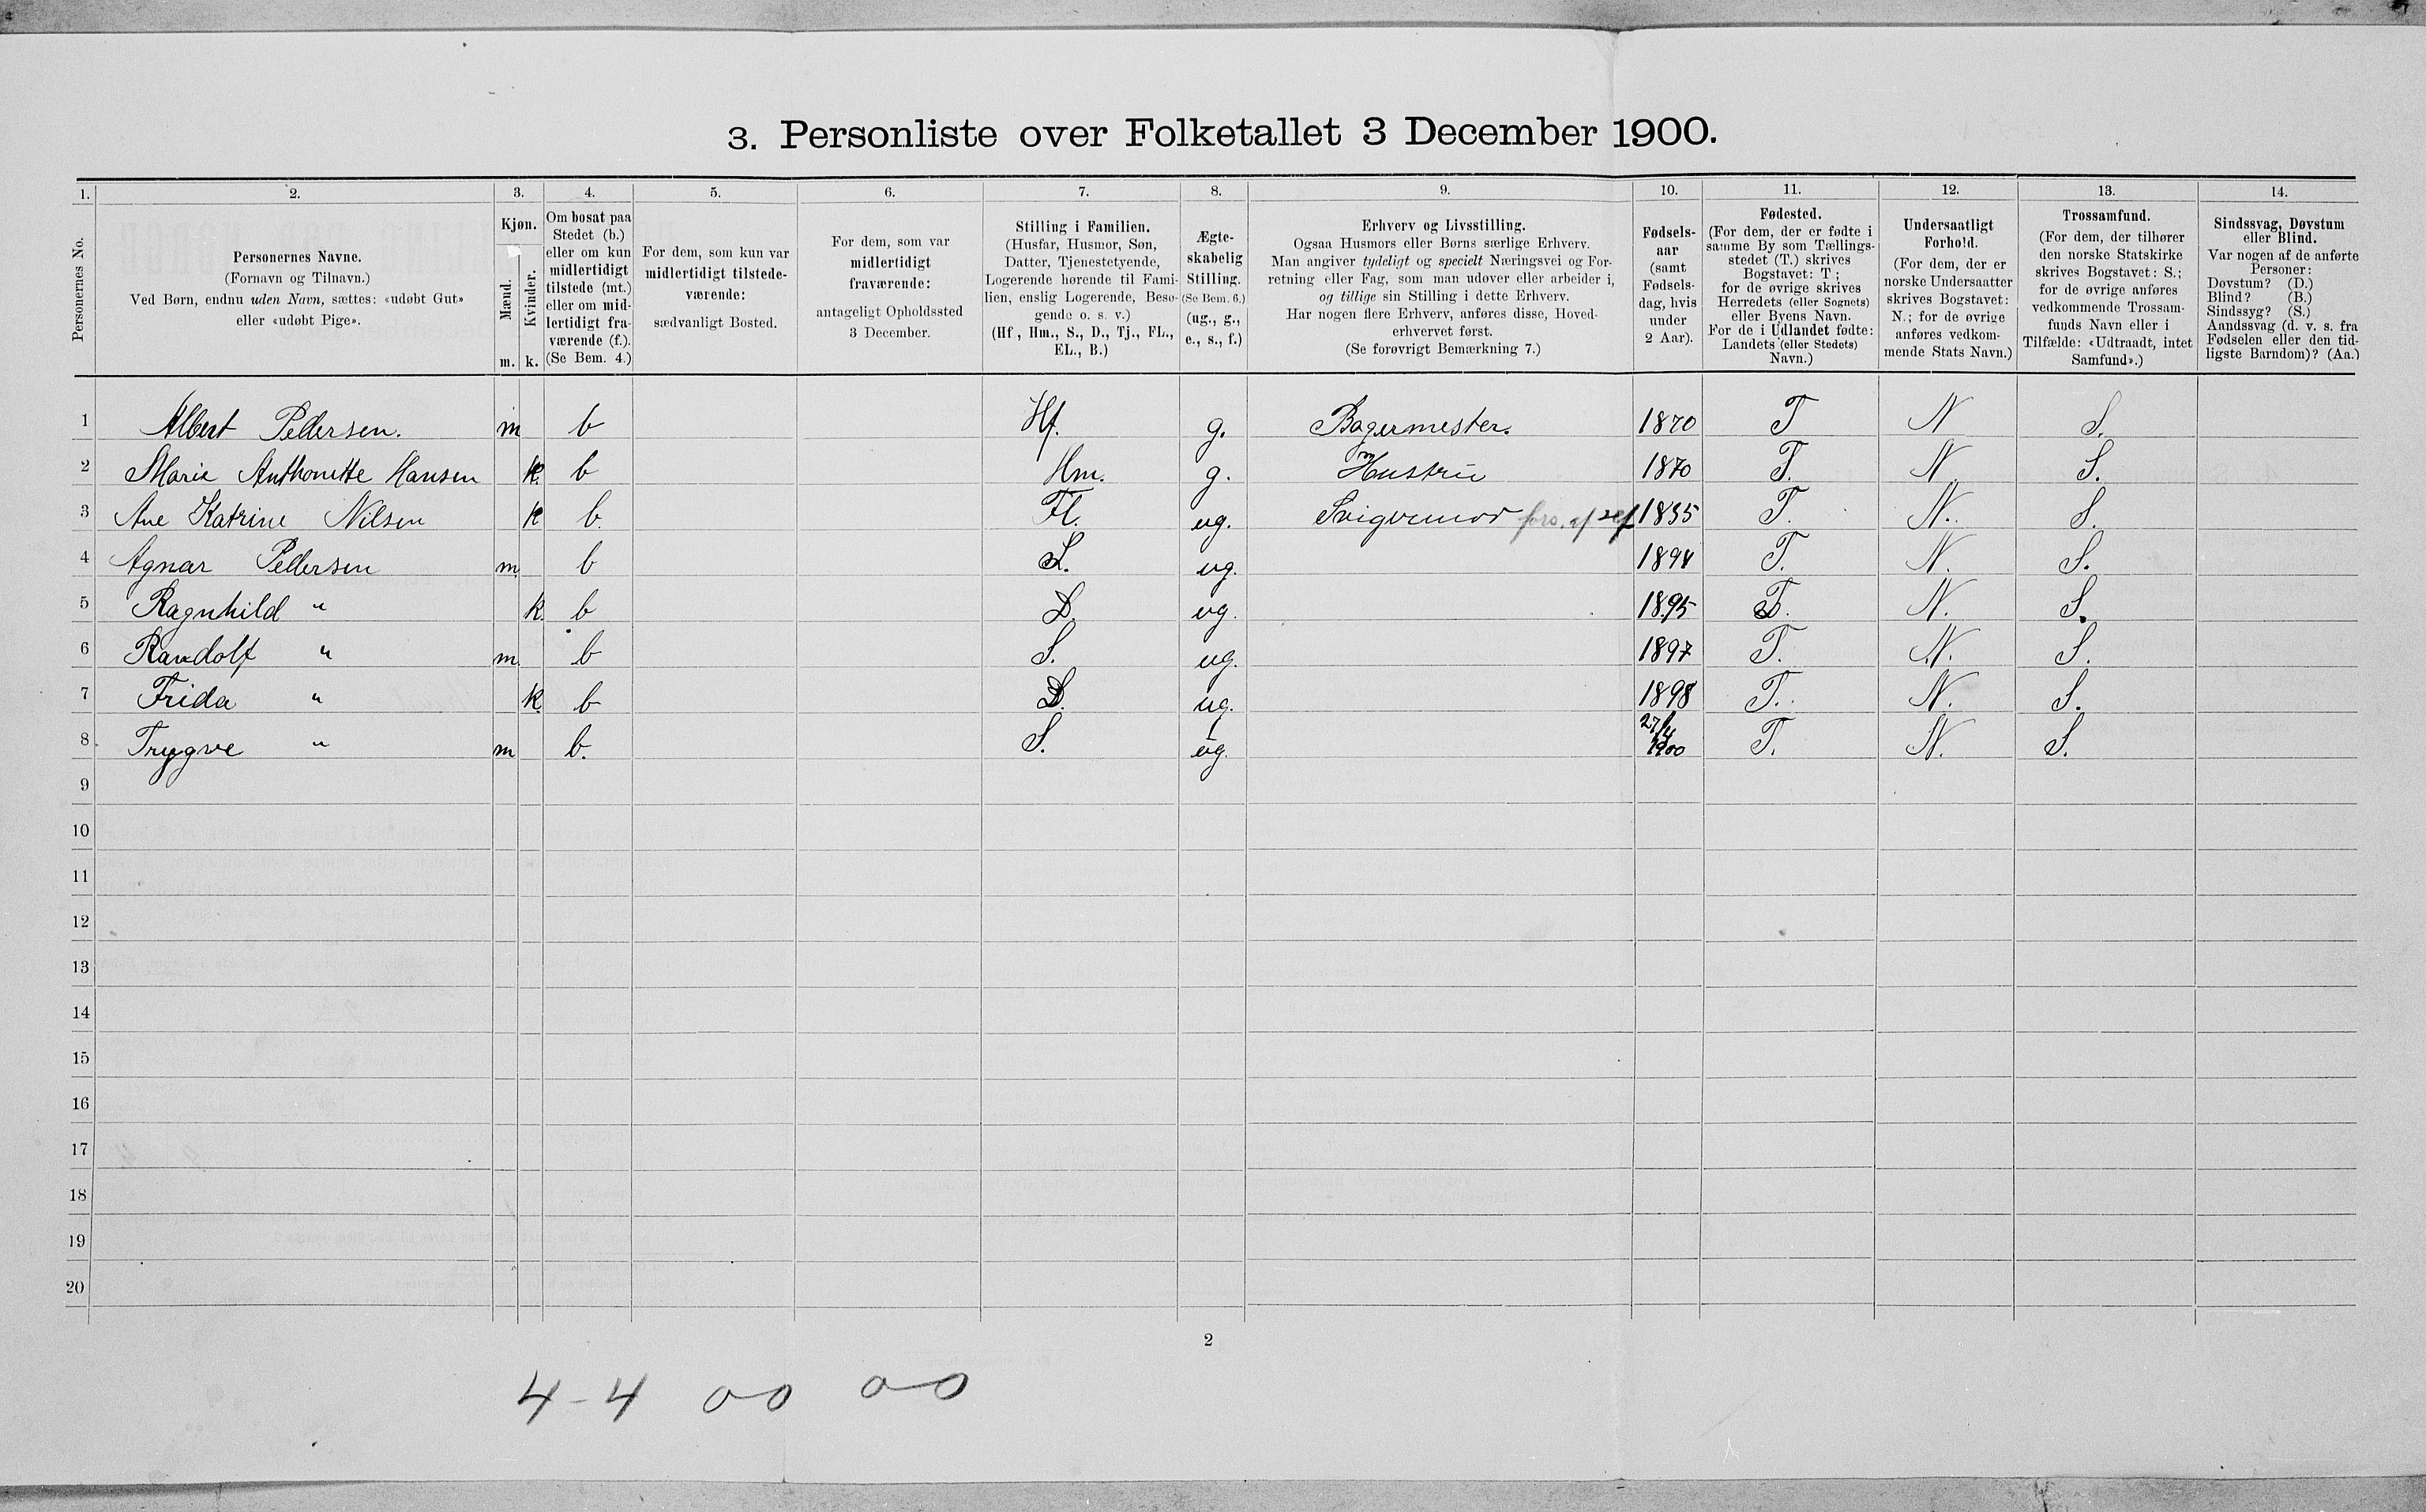 3. Personliste over Folketallet 3 December 1900.
1. 2. 3. 4. 5. 6. 7. 8. 9. 10. 11. 12. 13. 14.
Personernes No.
Personernes Navne.
(Fornavn og Tilnavn.)
Ved Børn, endnu uden Navn, sættes: «udøbt Gut»
eller «udøbt Pige».
Kjøn.
Mænd.
Kvinder.
m. k.
Om bosat paa
Stedet (b.)
eller om kun
midlertidigt
tilstede (mt.)
eller om mid-
lertidigt fra-
værende (f.).
(Se Bem. 4.)
For dem, som kun var
midlertidigt tilstede-
værende:
sædvanligt Bosted.
For dem, som var
midlertidigt
fraværende:
antageligt Opholdssted
3 December.
Stilling i Familien.
(Husfar, Husmor, Søn,
Datter, Tjenestetyende,
Logerende hørende til Fami-
lien, enslig Logerende, Besø-
gende o. s. v.)
(Hf, Hm., S., D., Tj., FL.,
EL., B.)
Ægte-
skabelig
Stilling.
(Se Bem. 6.)
(ug., g.,
e., s., f.)
Erhverv og Livsstilling.
Ogsaa Husmors eller Børns særlige Erhverv.
Man angiver tydeligt og specielt Næringsvei og For-
retning eller Fag, som man udøver eller arbeider i,
og tillige sin Stilling i dette Erhverv.
Har nogen flere Erhverv, anføres disse, Hoved-
erhvervet først.
(Se forøvrigt Bemærkning 7.)
Fødsels-
aar
(samt
Fødsels-
dag, hvis
under
2 Aar).
Fødested.
(For dem, der er fødte i
samme By som Tællings-
stedet (T.) skrives
Bogstavet: T;
for de øvrige skrives
Herredets (eller Sognets)
eller Byens Navn.
For de i Udlandet fødte:
Landets (eller Stedets)
Navn.)
Undersaatligt
Forhold.
(For dem, der er
norske Undersaatter
skrives Bogstavet:
N.; for de øvrige
anføres vedkom-
mende Stats Navn.)
Trossamfund.
(For dem, der tilhører
den norske Statskirke
skrives Bogstavet: S.;
for de øvrige anføres
vedkommende Trossam-
funds Navn eller i
Tilfælde: «Udtraadt, intet
Samfund».)
Sindssvag, Døvstum
eller Blind.
Var nogen af de anførte
Personer:
Døvstum? (D.)
Blind? (B.)
Sindssyg? (S.)
Aandssvag (d. v. s. fra
Fødselen eller den tid-
ligste Barndom)? (Aa.)
1 Albert Pedersen. m b Hf. g. Bagermester. 1870 T N S.
2 Marie Anthonette Hansen k. b Hm. g. Hustru 1870 T. N S.
3 Ane Katrine Nilsen k b. Fl. ug. Svigermor fors. af 1835 T. N. S.
4 Agnar Pedersen m. b S. ug. 1894 T. N. S.
5 Ragnhild " k. b D. ug. 1895 T. N. S.
6 Randolf " m. b S. ug. 1897 T. N. S.
7 Frida " k. b D. ug. 1898 T. N. S.
8 Trygve " m b. S. ug. 27/4 1900 T. N. S.
9
10
11
12
13
14
15
16
17
18
19
20
2
4-4 00 00